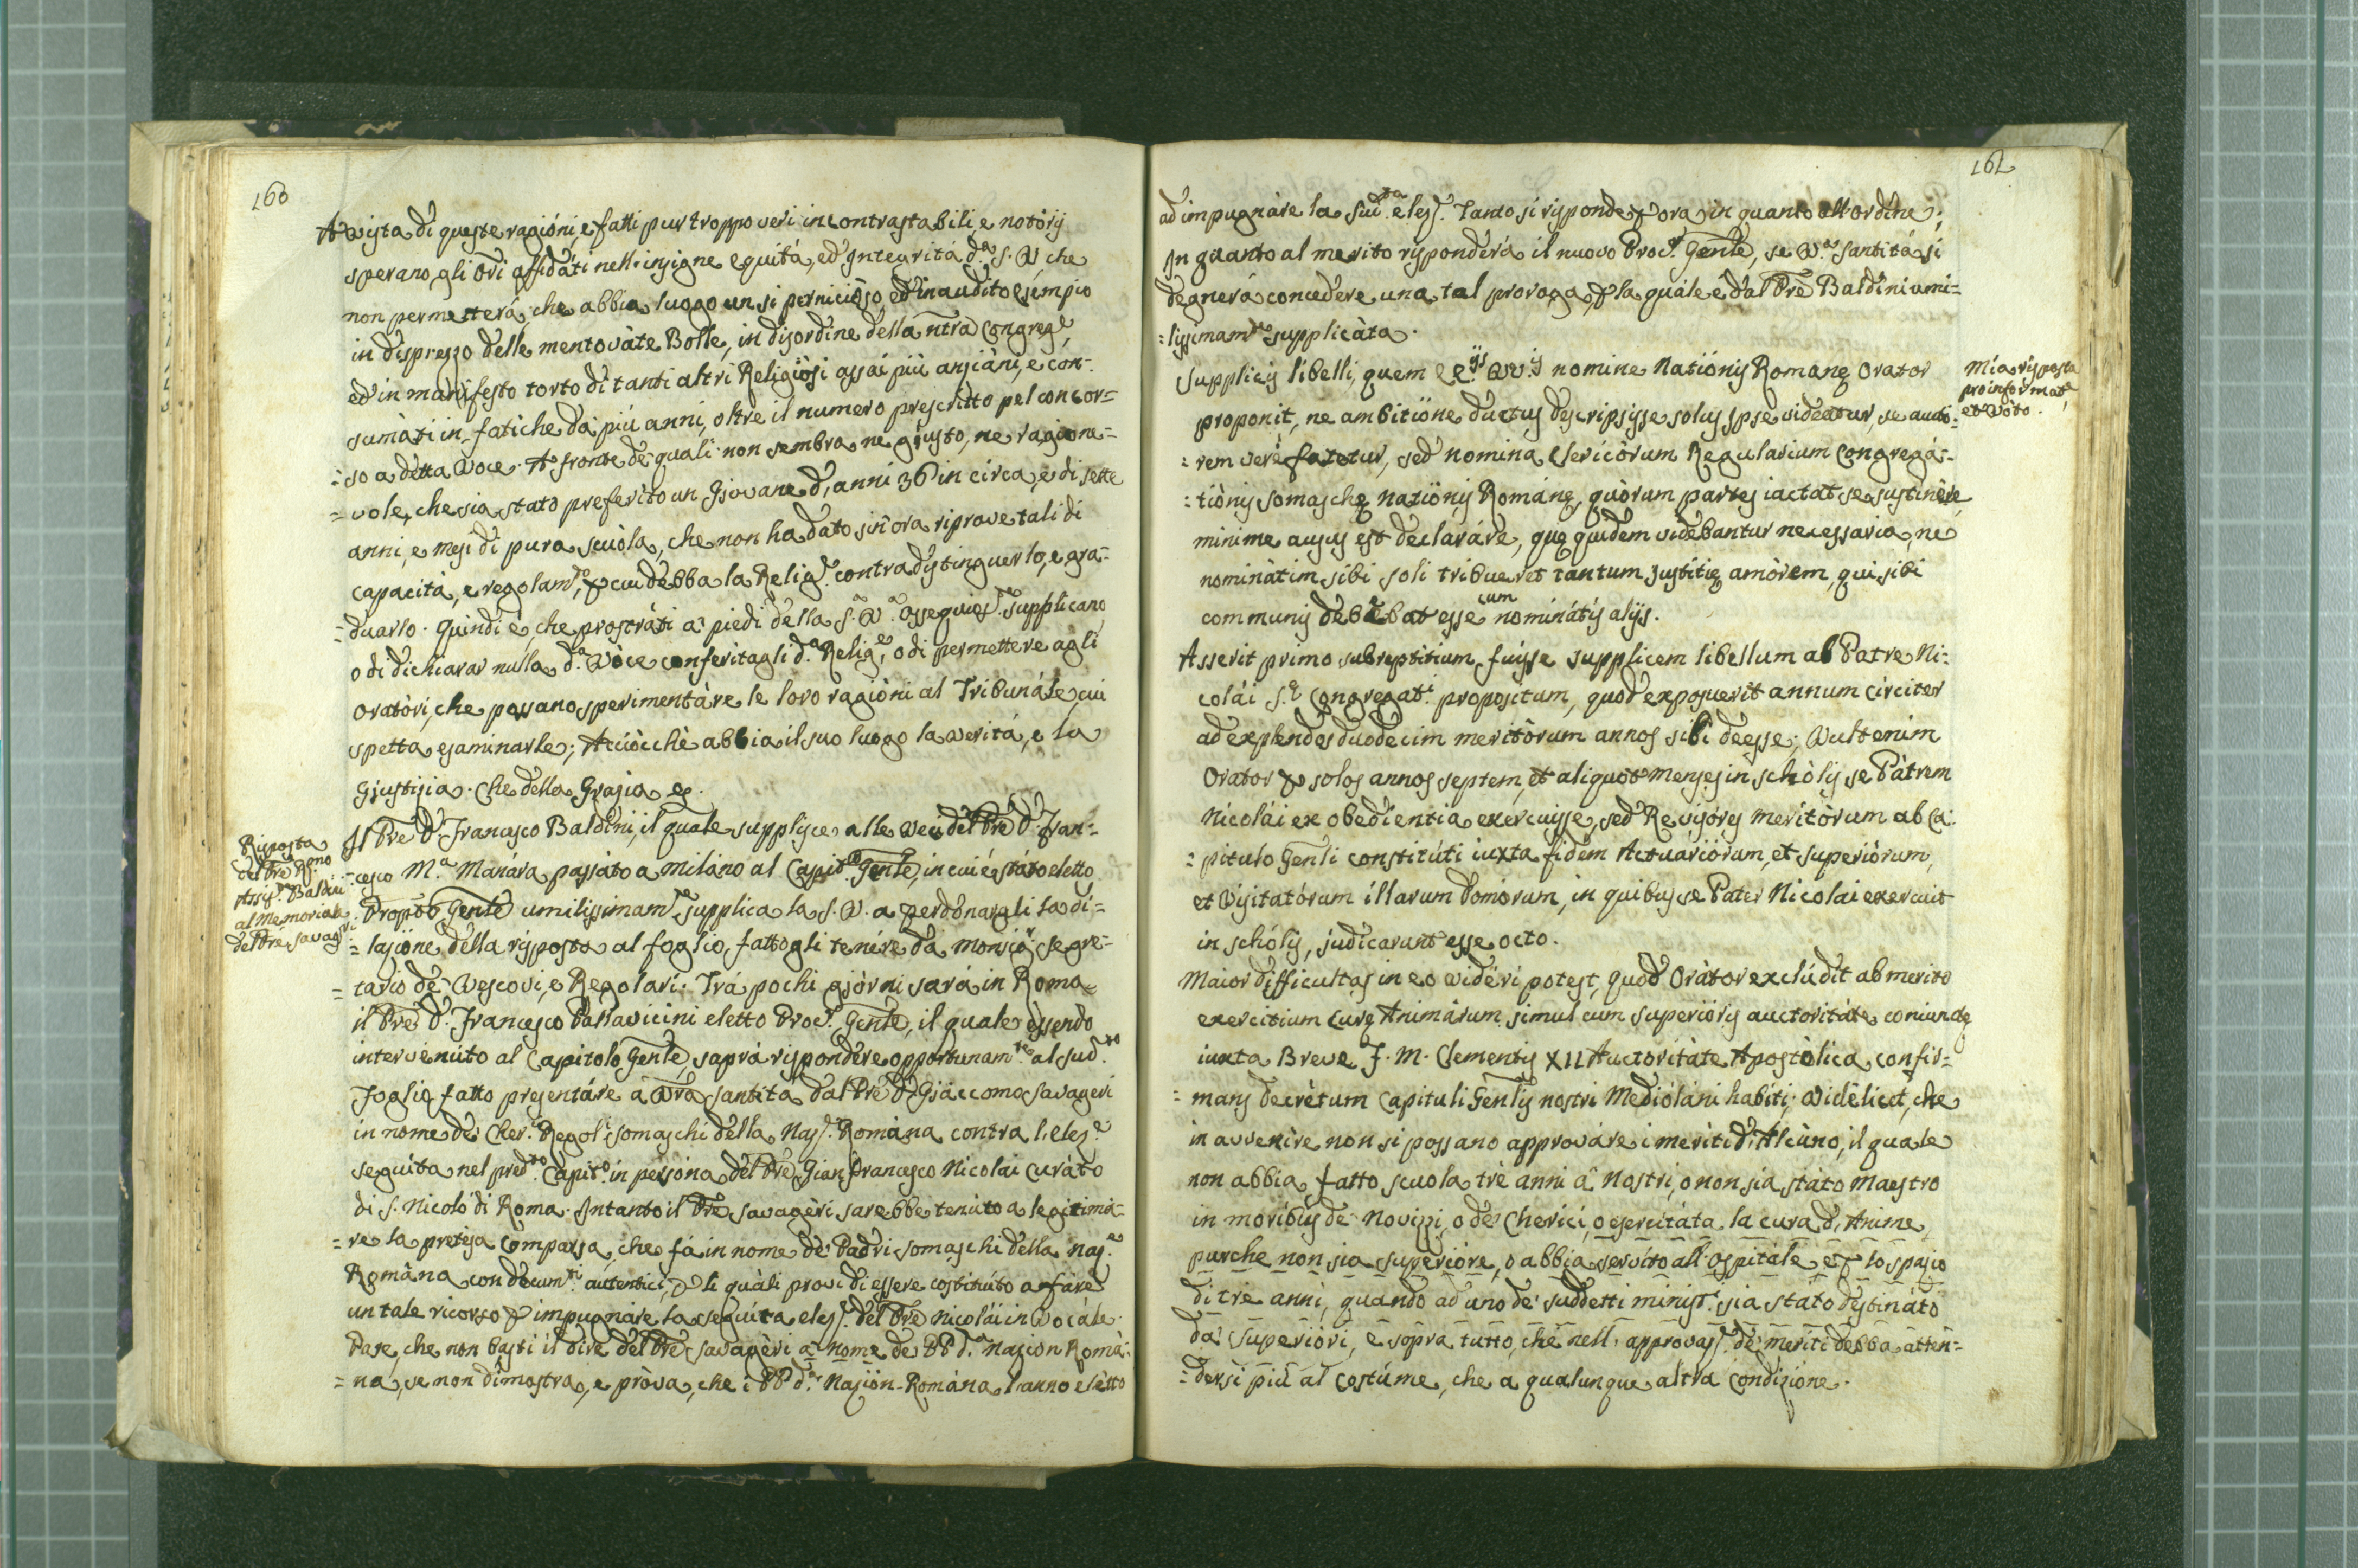 160
A vista di queste ragióni, e fatti pur troppo veri incontrastabili, e notòrij
sperano gli Ori affidàti nell'insigne equitá, ed Integritá d.ª S. V. che
non permetterá, che abbia luogo un si perniciòso, ed inaudito esempio
in disprezzo delle mentovàte Bolle, in disordine della ntra Congreg.e,
ed in manifesto torto di tanti altri Religiòsi assái più anziàni, e con-
sumàti in fatiche da più anni, oltre il numero prescritto pel concor=
=so a detta Voce. A fronte de quali non sembra ne giusto, ne ragione=
=vole, che sia stato preferito un Giovane d'anni 36 in circa, e di sette
anni, e mesi di pura scuòla, che non ha dato sin'ora riprove tali di
capacità, e regolam.to, p cui debba la Relig.e contradistinguerlo, e gra=
=duarlo. Quindi è, che prostràti a' piedi della S. V. ossequios.te supplicano
o di dichiarar nulla d.ª Vòce conferitagli d.ª Relig.e, o di permettere agli
Oratòri, che possano sperimentàre le loro ragióni al Tribunàle, cui
spetta esaminarle; Acciòcchè abbia il suo luogo la verità, e la
Giustizia. Che della Grazia &.
Risposta
del Pre R.mo
Assis.te Baldini
al Memoriale
del Pre Savageri
Il Pre D. Francesco Baldini, il quale supplisce alle veci del Pre D. Fran=
=cesco M.ª Manára passàto a Milano al Capit.lo Genle, in cui é státo eletto
Propto Genle umilissimam.te supplica la S. V. a perdonargli la di=
=lazióne della rispósta al foglio fattogli tenére da Monsig.r Segre=
=tario de' Vescovi, e Regolari. Trá pochi giórni sará in Roma
il Pre D. Francesco Pallavicini eletto Proc.r Genle, il quale essendo
intervenúto al Capitolo Genle, saprà rispondère opportunam.te al sud.to
Foglio fatto presentáre a Vra Santità dal Pre D. Giàccomo Savageri
in nome de' Cher. Regol.i Somaschi della Naz.e Romàna contra l'elez.e
seguíta nel pred.to Capit.lo in persòna del Pre Gian Francesco Nicolai Curàto
di S. Nicoló di Roma. Intanto il Pre Savagèri sarebbe tenúto a legitimà=
=re la pretesa Comparsa, che fá in nome de' Padri Somaschi della Naz.e
Romàna con docum.ti autentici, p li quàli provi di essere costituíto a fáre
un tale ricorso p impugnàre la seguíta elez.e del Pre Nicolái in Vocále.
Pare, che non basti il dire del Pre Savagèri a nome de PP d.ª Nazion Romà=
=na, se non dimostra, e pròva, che i PP d.ª Naziòn Romàna l'anno elètto
161
ad impugnàre la sud.ta elez.e. Tanto si risponde p ora in quanto all'ordine;
In quanto al merito risponderá il nuovo Proc.r Genle, se V.ª Santitá si
degnerá concedere una tal proroga, p la quále è dal Pre Baldini umi=
=lissimam.te supplicàta.
Mia risposta
pro informat.e
et Vòto.
Supplicis libelli, quem EE.ijs VV.is nomine Natiònis Romanę Orator
proponit, ne ambitiòne ductus descripsisse solus Ipse videatur, se auctò=
=rem verè fatetur, sed nomina Clericòrum Regularium Congregà=
=tiònis Somaschę natiònis Románę, quòrum partes iactat se sustinère
minime ausus est declaràre, quę quidem videbantur necessaria, ne
nominàtim sibi soli tribueret tantum Justitię amòrem, qui sibi
communis debebat esse cum nominátis alijs.
Asserit primo subreptitium fuisse supplicem libellum a Patre Ni=
colái S.ę Congregat.i propositum, quod exposuerit annum circiter
ad explendos duodecim meritòrum annos sibi deesse; Vult enim
Orator p solos annos septem, et aliquot menses in scholis se Pàtrem
Nicolái ex obedientia exercuisse, sed Revisóres meritòrum ab Ca=
=pitulo Genli constitúti iuxta fidem Actuariòrum, et superiòrum,
et Visitatórum illarum domòrum, in quibus se Pater Nicolai exercuit
in schólis, judicarunt esse octo.
Maior difficultas in eo vidéri potest, quod Oràtor exclúdit ab merito
exercitium Curę Animàrum simul cum superióris auctoritàte coniunctę
iuxta Breve F. M. Clementis XII Auctoritàte Apostòlica confir=
=mans decrètum Capituli Genlis nostri Mediolàni habiti; Vidèlicet, che
in avvenìre non si possano approváre i meríti d'Alcùno, il quale
non abbia fatto scuola trè anni á Nostri, o non sia stàto Maestro
in moribus de' Novizzi, o de' Cherici, o esercitáta la cura d'Anime,
purche non sia superióre, o abbia servíto all'Ospitàle e p lo spazio
di trè anni, quando ad uno de' suddetti minist.i sia státo destináto
da' Superióri, e sopra tutto, che nell'approvaz.e de' meríti debba atten=
=dersi piú al costúme, che a qualunque altra Condizione.